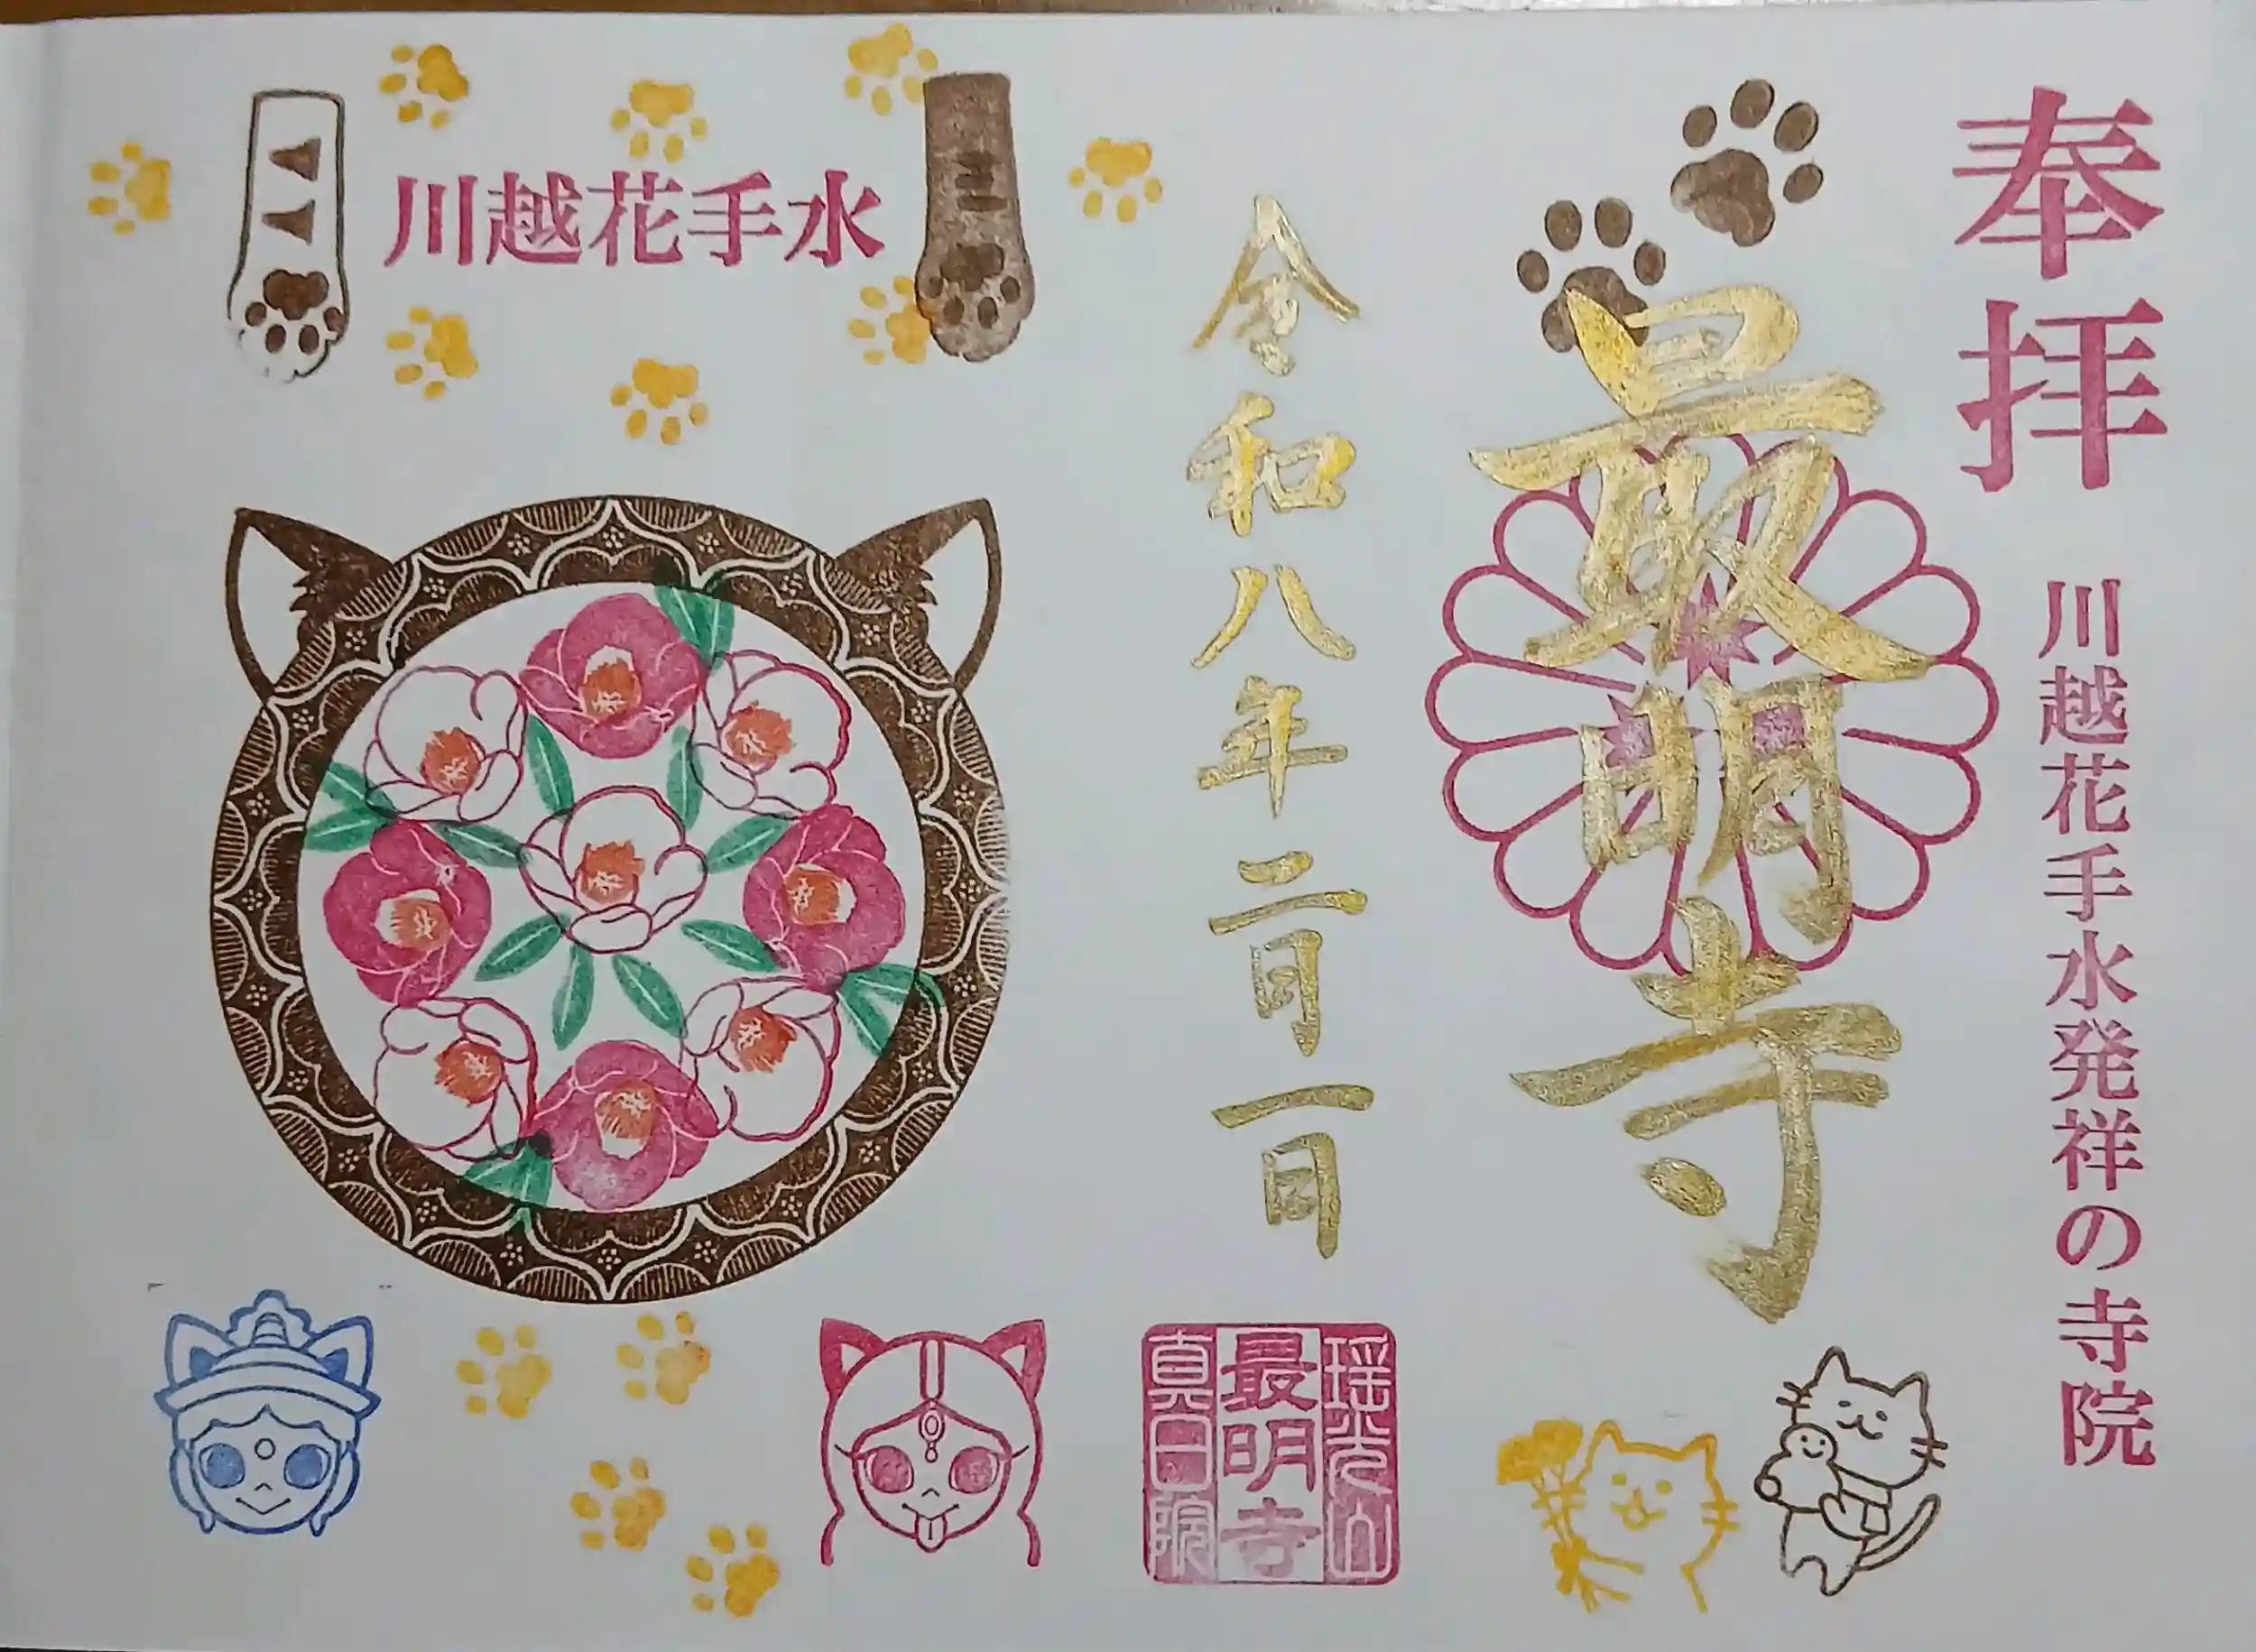 奉拝
川越花手水発祥の寺院
最明寺
令和八年二月一日
瑶光山
最明寺
真日院
川越花手水